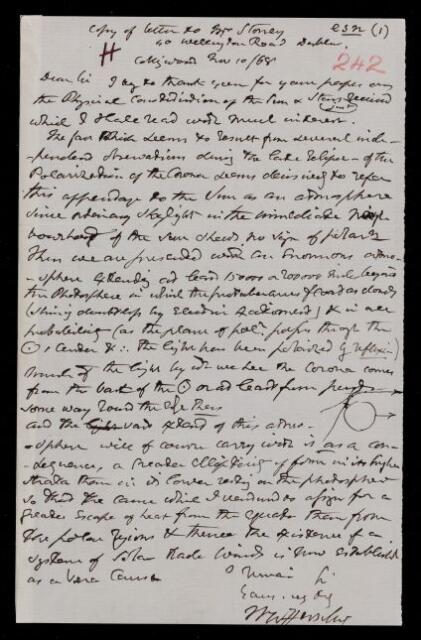 Copy of letter to Mr Stoney esn (1)
40 Wellington Road Dublin.
H Collingwood Nov 10/68 242
Dear Sir I beg to thank you for your paper on
the Physical Constitution of the Sun & Stars just received
which I shall read with much interest.
The fact which seems to result from several inde-
-pendent observations during the late Eclipse - of the
Polarization of the Corona seems decisive to refer
this appendage to the Sun as an atmosphere
since ordinary skylight in the immediate neigh-
bourhood of the sun shews no sign of polarizn
Then we are presented with an enormous atmo-
-sphere extending at least or miles beyond
the Photosphere in which the protuberances float as clouds
(shining doubtless by Electric excitement) & in all
probability (as the plane of poln passes through the
☉'s center & ∴ the light has been polarized by reflexion)
much of the light by wh we see the Corona comes
from the back of the ☉ or at least from
some way round the
and the vast extent of this atmo-
-sphere will of course carry with it as a con-
-sequence, a greater Ellipticity of form in its higher
strata than in its lower resting on the photosphere
so that the cause which I ventured to assign for a
greater escape of heat from the equator than from
the polar regions & thence the existence of a
system of Solar Trade Winds is now established
as a Vera Causa
I remain Sir
Yours
Herschel